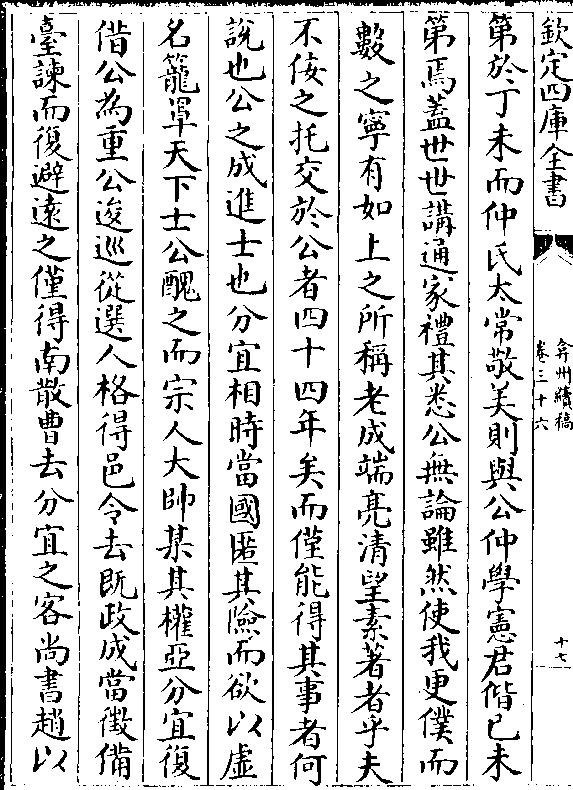 欽定四庫全書
弇州續稿
卷三十六
十七
第於丁未而仲氏太常敬美則與公仲學憲君偕己未
第焉蓋世世講通家禮其悉公無論雖然使我更僕而
數之寧有如上之所稱老成端亮清望素著者乎夫
不佞之托交於公者四十四年矣而僅能得其事者何
說也公之成進士也分宜相時當國匿其險而欲以虛
名籠罩天下士公醜之而宗人大帥某其權亞分宜復
借公為重公逡巡從選人格得邑令去既政成當徵備
臺諫而復避遠之僅得南散曹去分宜之客尚書趙以